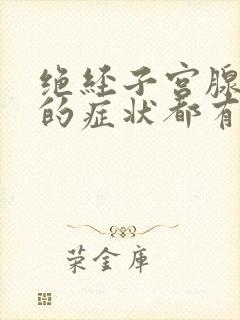 绝经子宫腺
的症状都有
荣金库